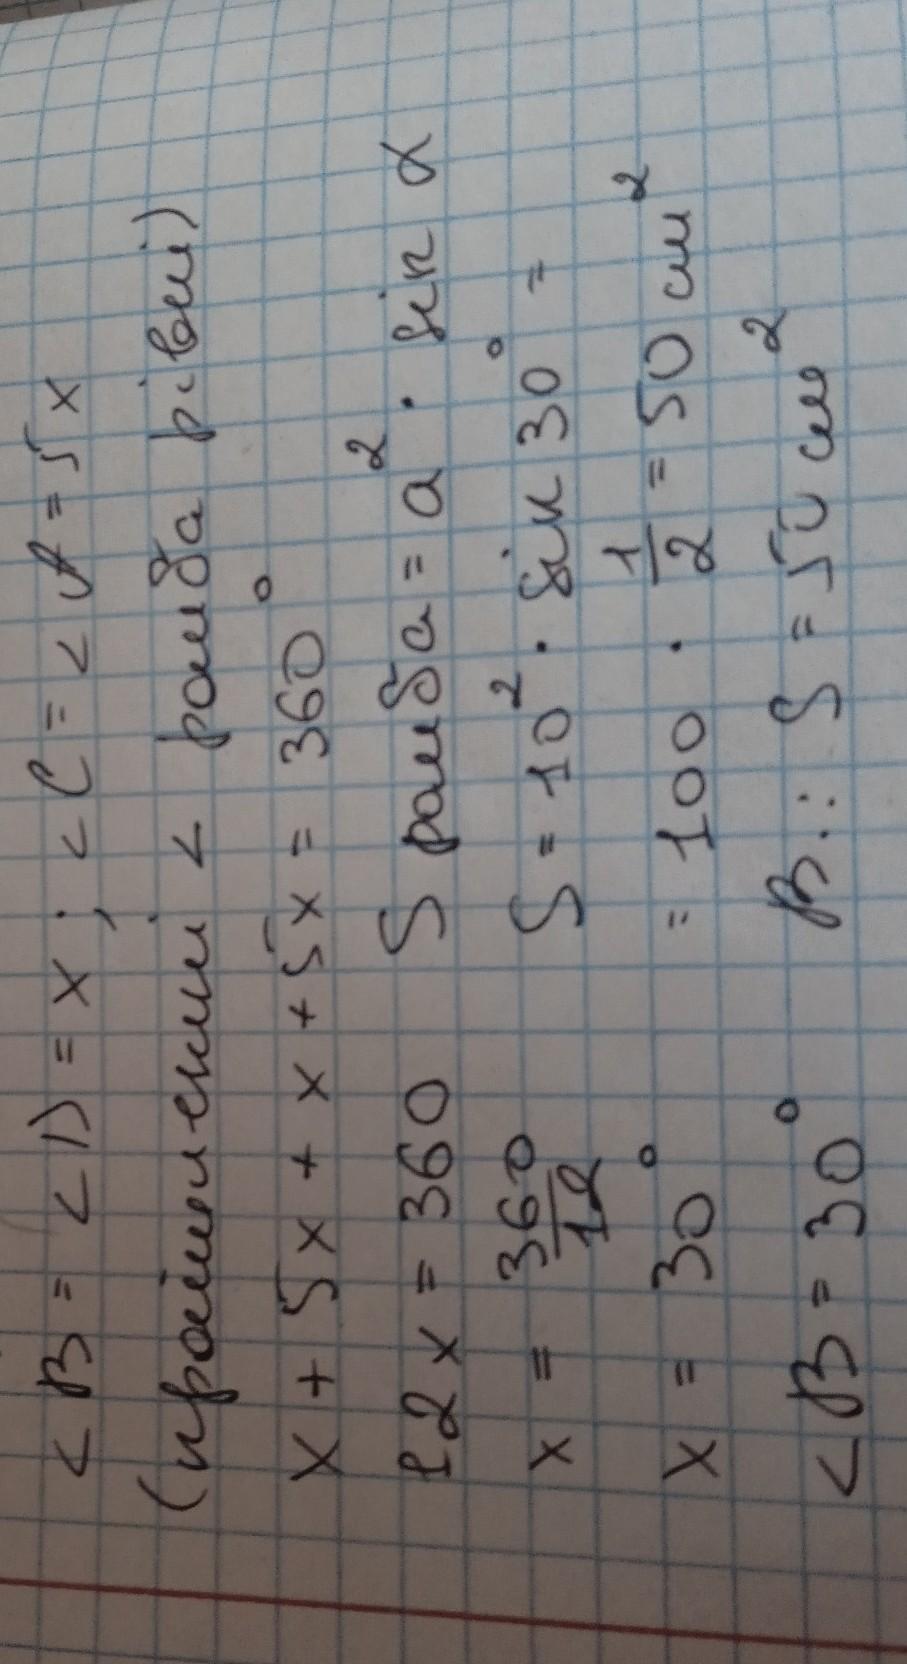 < B = < D = x; < C = < A = 5x
(протилежні < ромба рівні)
x + 5x + x + 5x = 360°
12x = 360
x = 360/12
x = 30°
< B = 30°
S ромба = a² · sin α
S = 10² · sin 30° =
= 100 · 1/2 = 50 см²
В.: S = 50 см²